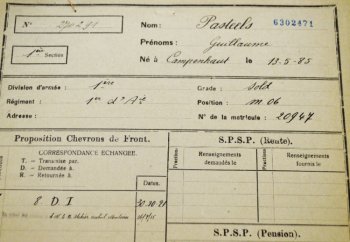 N° 270291
Nom: Pastiels 6302471
Prénoms: Guillaume
1ère Section
Né à Campenhaut le 13-5-85
Division d'armée: 1ère Grade: Sold
Régiment: 1er d'Art Position: M.06
Adresse: N° de la matricule: 20947
Proposition Chevrons de Front.
CORRESPONDANCE ECHANGEE.
T. - Transmise par.
D. - Demandée à.
R. - Retournée à.
Dates.
8 D I 30.10.21
S.P.S.P. (Rente).
Fraction
Renseignements demandés le
Fraction
Renseignements fournis le
S.P.S.P. (Pension).